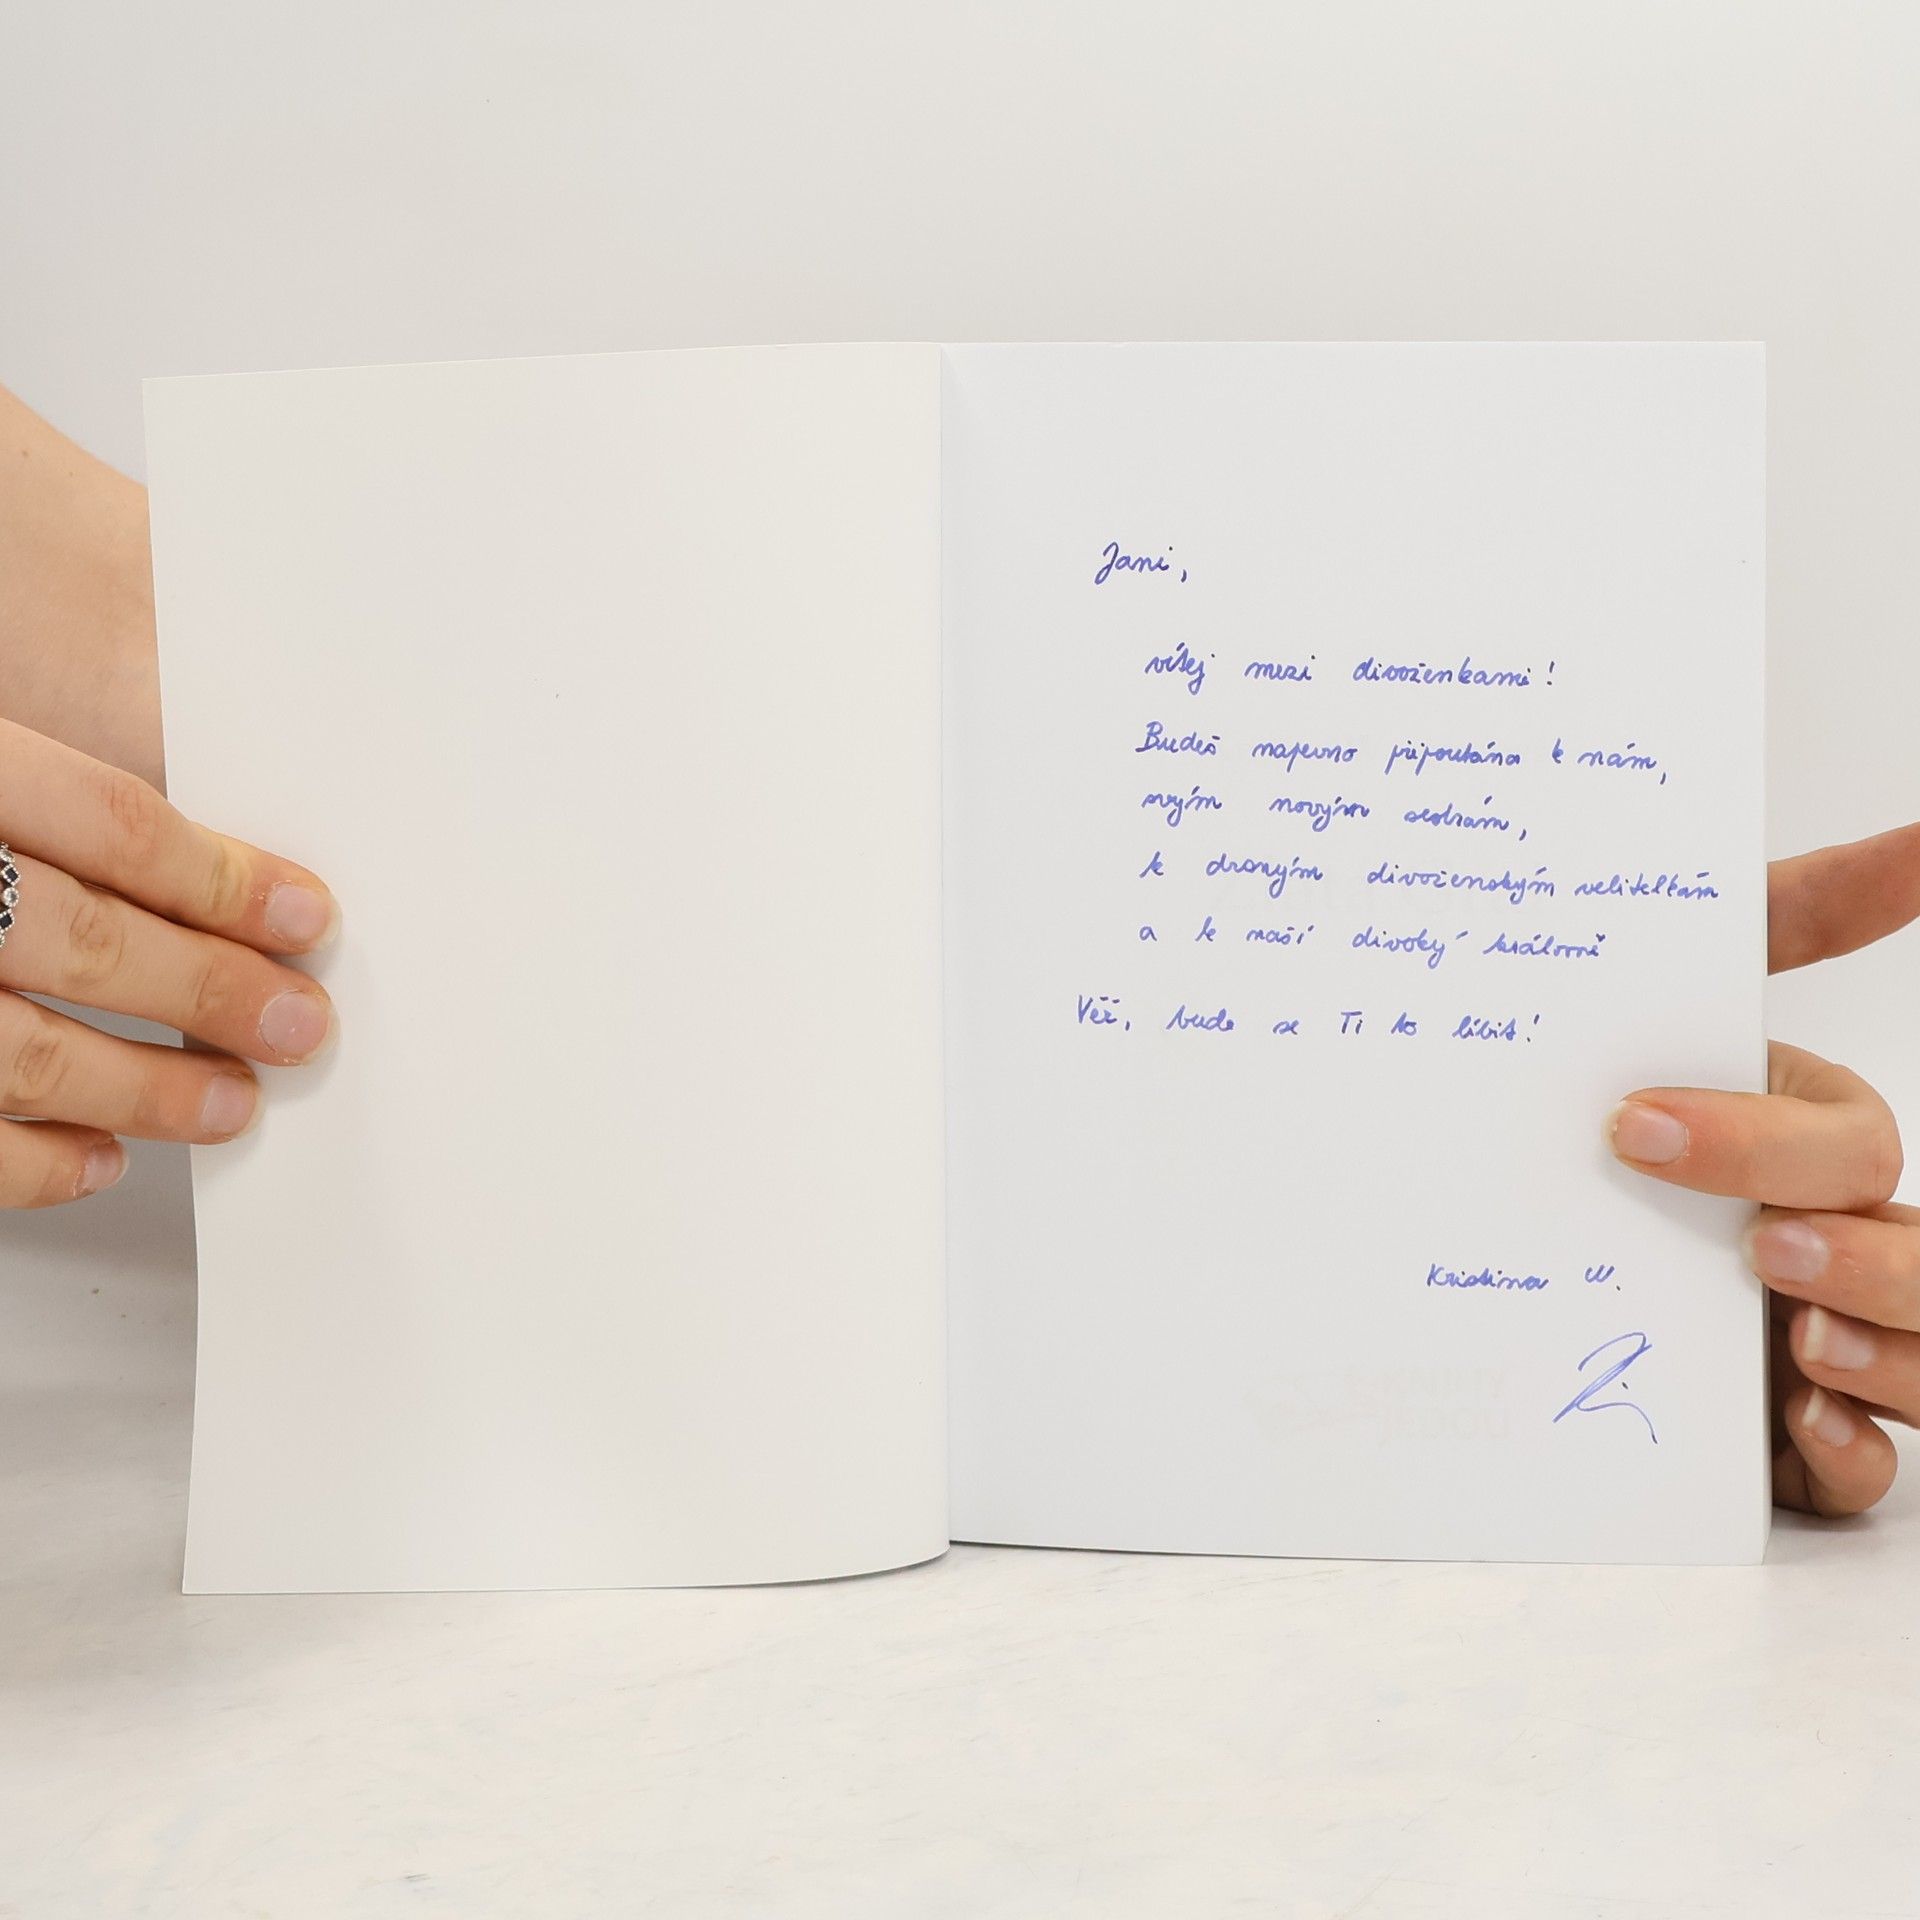 Jani,
vítej mezi divoženkami!
Budeš napevno připoutána k nám,
svým novým sestrám,
k drsným divoženským velitelkám
a k naší divoký královně
Věř, bude se Ti to líbit!
Kristina W.
KNIHY
JEDOU